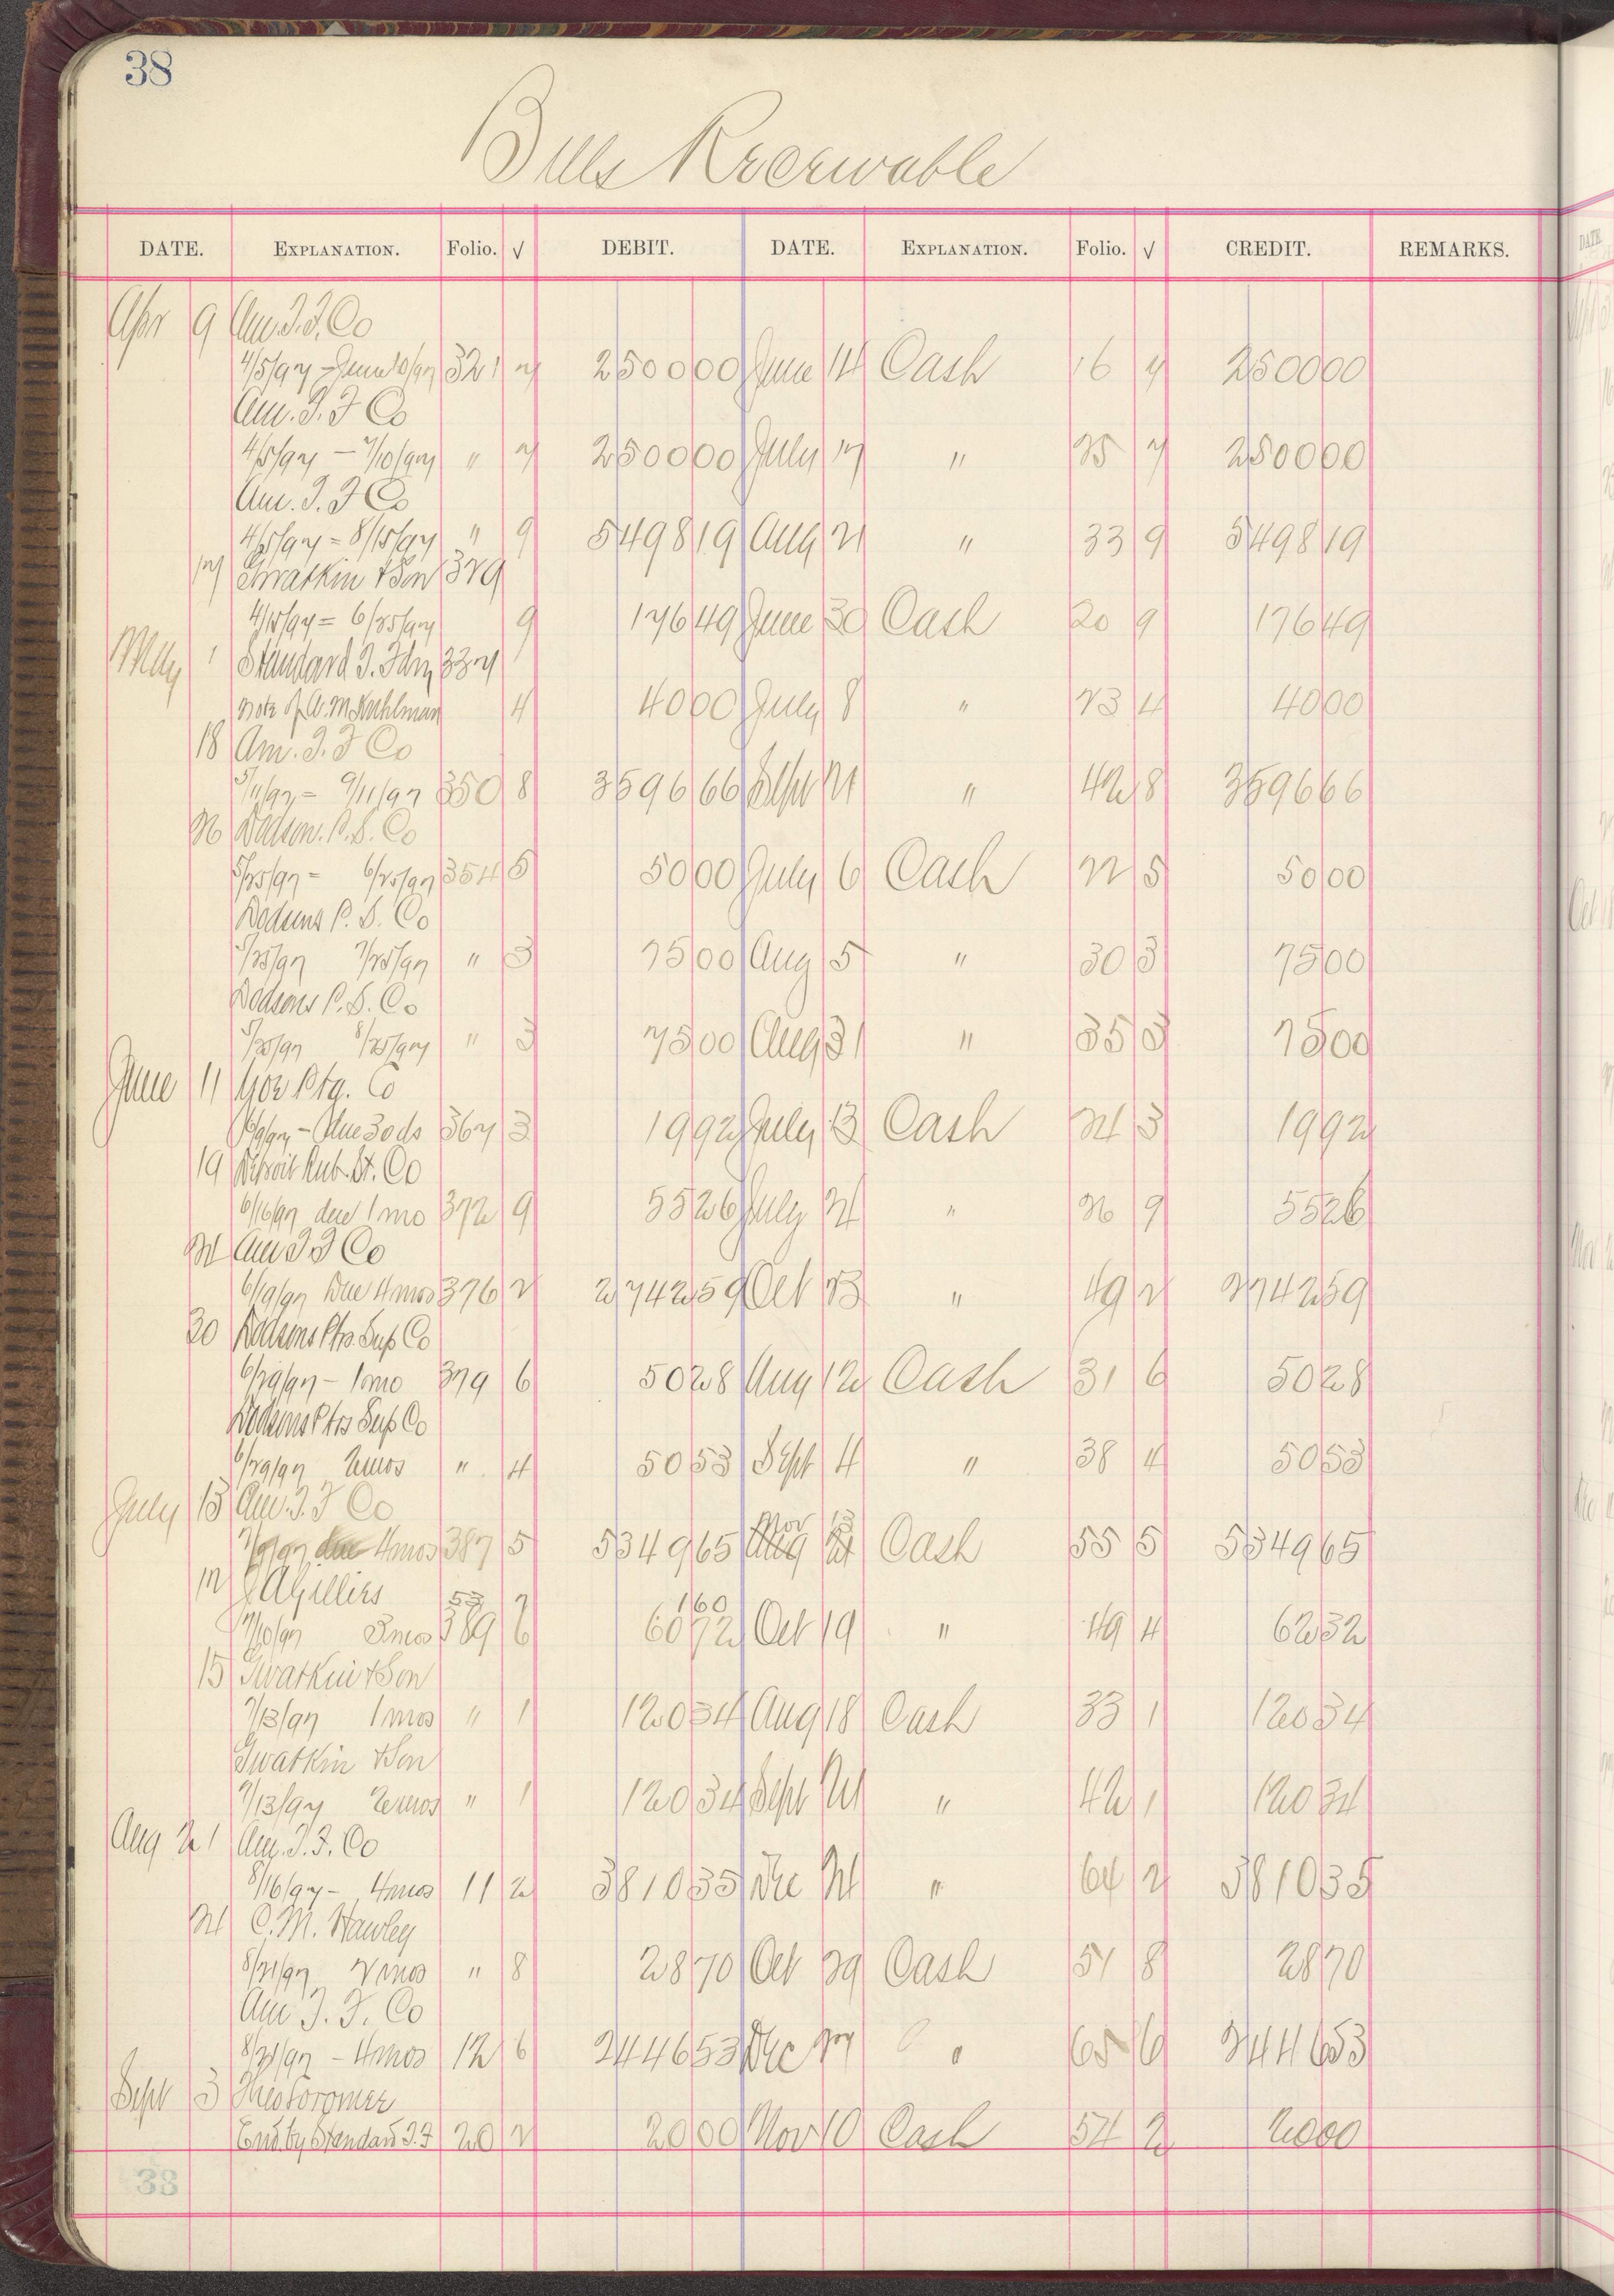 38
Bills Receivable
DATE. EXPLANATION. Folio. √ DEBIT. DATE. EXPLANATION. Folio. √ CREDIT. REMARKS.
Apr 9 Am. T. F. Co
4/5/97 - June 10/97 321 7 2500 00 June 14 Cash 16 7 2500 00
Am. T. F Co
4/5/97 - 7/10/97 " 7 2500 00 July 17 " 25 7 2500 00
Am. T. F Co
4/5/97 = 8/15/97 " 9 5498 19 Aug 21 " 33 9 5498 19
17 Gwatkin & Son 329
4/15/97 = 6/25/97 9 176 49 June 30 Cash 20 9 176 49
May 1 Standard T. Fdry 337
note of A. M. Kuhlman 4 40 00 July 8 " 23 4 40 00
18 Am. T. F Co
5/11/97 = 9/11/97 350 8 3596 66 Sept 21 " 42 8 3596 66
26 Dodson. P. S. Co
5/25/97 = 6/25/97 354 5 50 00 July 6 Cash 22 5 50 00
Dodsons P. S. Co
5/25/97 7/25/97 " 3 75 00 Aug 5 " 30 3 75 00
Dodsons P. S. Co
5/25/97 8/25/97 " 3 75 00 Aug 31 " 35 3 75 00
June 11 Ptg. Co
6/9/97 - due 30 ds 367 3 19 92 July 13 Cash 24 3 19 92
19 Detroit Rub. St. Co
6/16/97 due 1 mo 372 9 55 26 July 24 " 26 9 55 26
24 Am T F Co
6/19/97 Due 4 mos 376 2 2742 59 Oct 23 " 49 2 2742 59
30 Dodsons Ptrs Sup Co
6/29/97 - 1 mo 379 6 50 28 Aug 12 Cash 31 6 50 28
Dodsons Ptrs Sup Co
6/29/97 2 mos " 4 50 53 Sept 4 " 38 4 50 53
July 13 Am. T. F Co
Nov 13
7/9/97 due 4 mos 387 5 5349 65 Aug 21 Cash 55 5 5349 65
17 J A Gilliers 53 7 1 60
7/10/97 3 mos 389 6 60 72 Oct 19 " 49 4 62 32
15 Gwatkin & Son
7/13/97 1 mos " 1 120 34 Aug 18 Cash 33 1 120 34
Gwatkin & Son
7/13/97 2 mos " 1 120 34 Sept 21 " 42 1 120 34
Aug 21 Am. T. F. Co
8/16/97 - 4 mos 11 2 3810 35 Dec 21 " 64 2 3810 35
24 C. M. Hawley
8/21/97 2 mos " 8 28 70 Oct 29 Cash 51 8 28 70
Am T. F. Co
8/21/97 - 4 mos 12 6 2446 53 Dec 27 " 65 6 2446 53
Sept 3
End. by Standard T. F 20 2 20 00 Nov 10 Cash 54 2 20 00
38